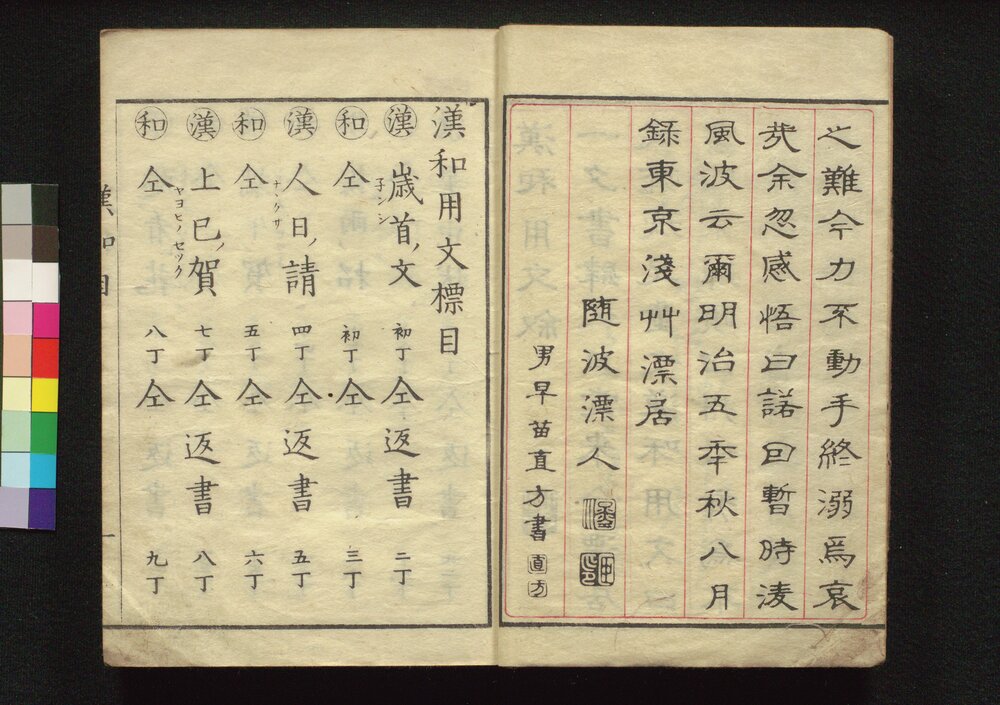 之難今力不動手終溺爲哀
哉余忽感悟曰諾回暫時淩
風波云爾明治五季秋八月
錄東京淺艸漂居
随波漂人
男早苗直方書
直方
漢和用文標目
漢 歳首ノ文 初丁 仝返書 二丁
和 仝 初丁 仝返書 三丁
漢 人日ノ請 四丁 仝返書 五丁
和 仝 五丁 仝返書 六丁
漢 上巳ノ賀 七丁 仝返書 八丁
ヤヨヒノセック
和 仝 八丁 仝返書 九丁
漢和目
一